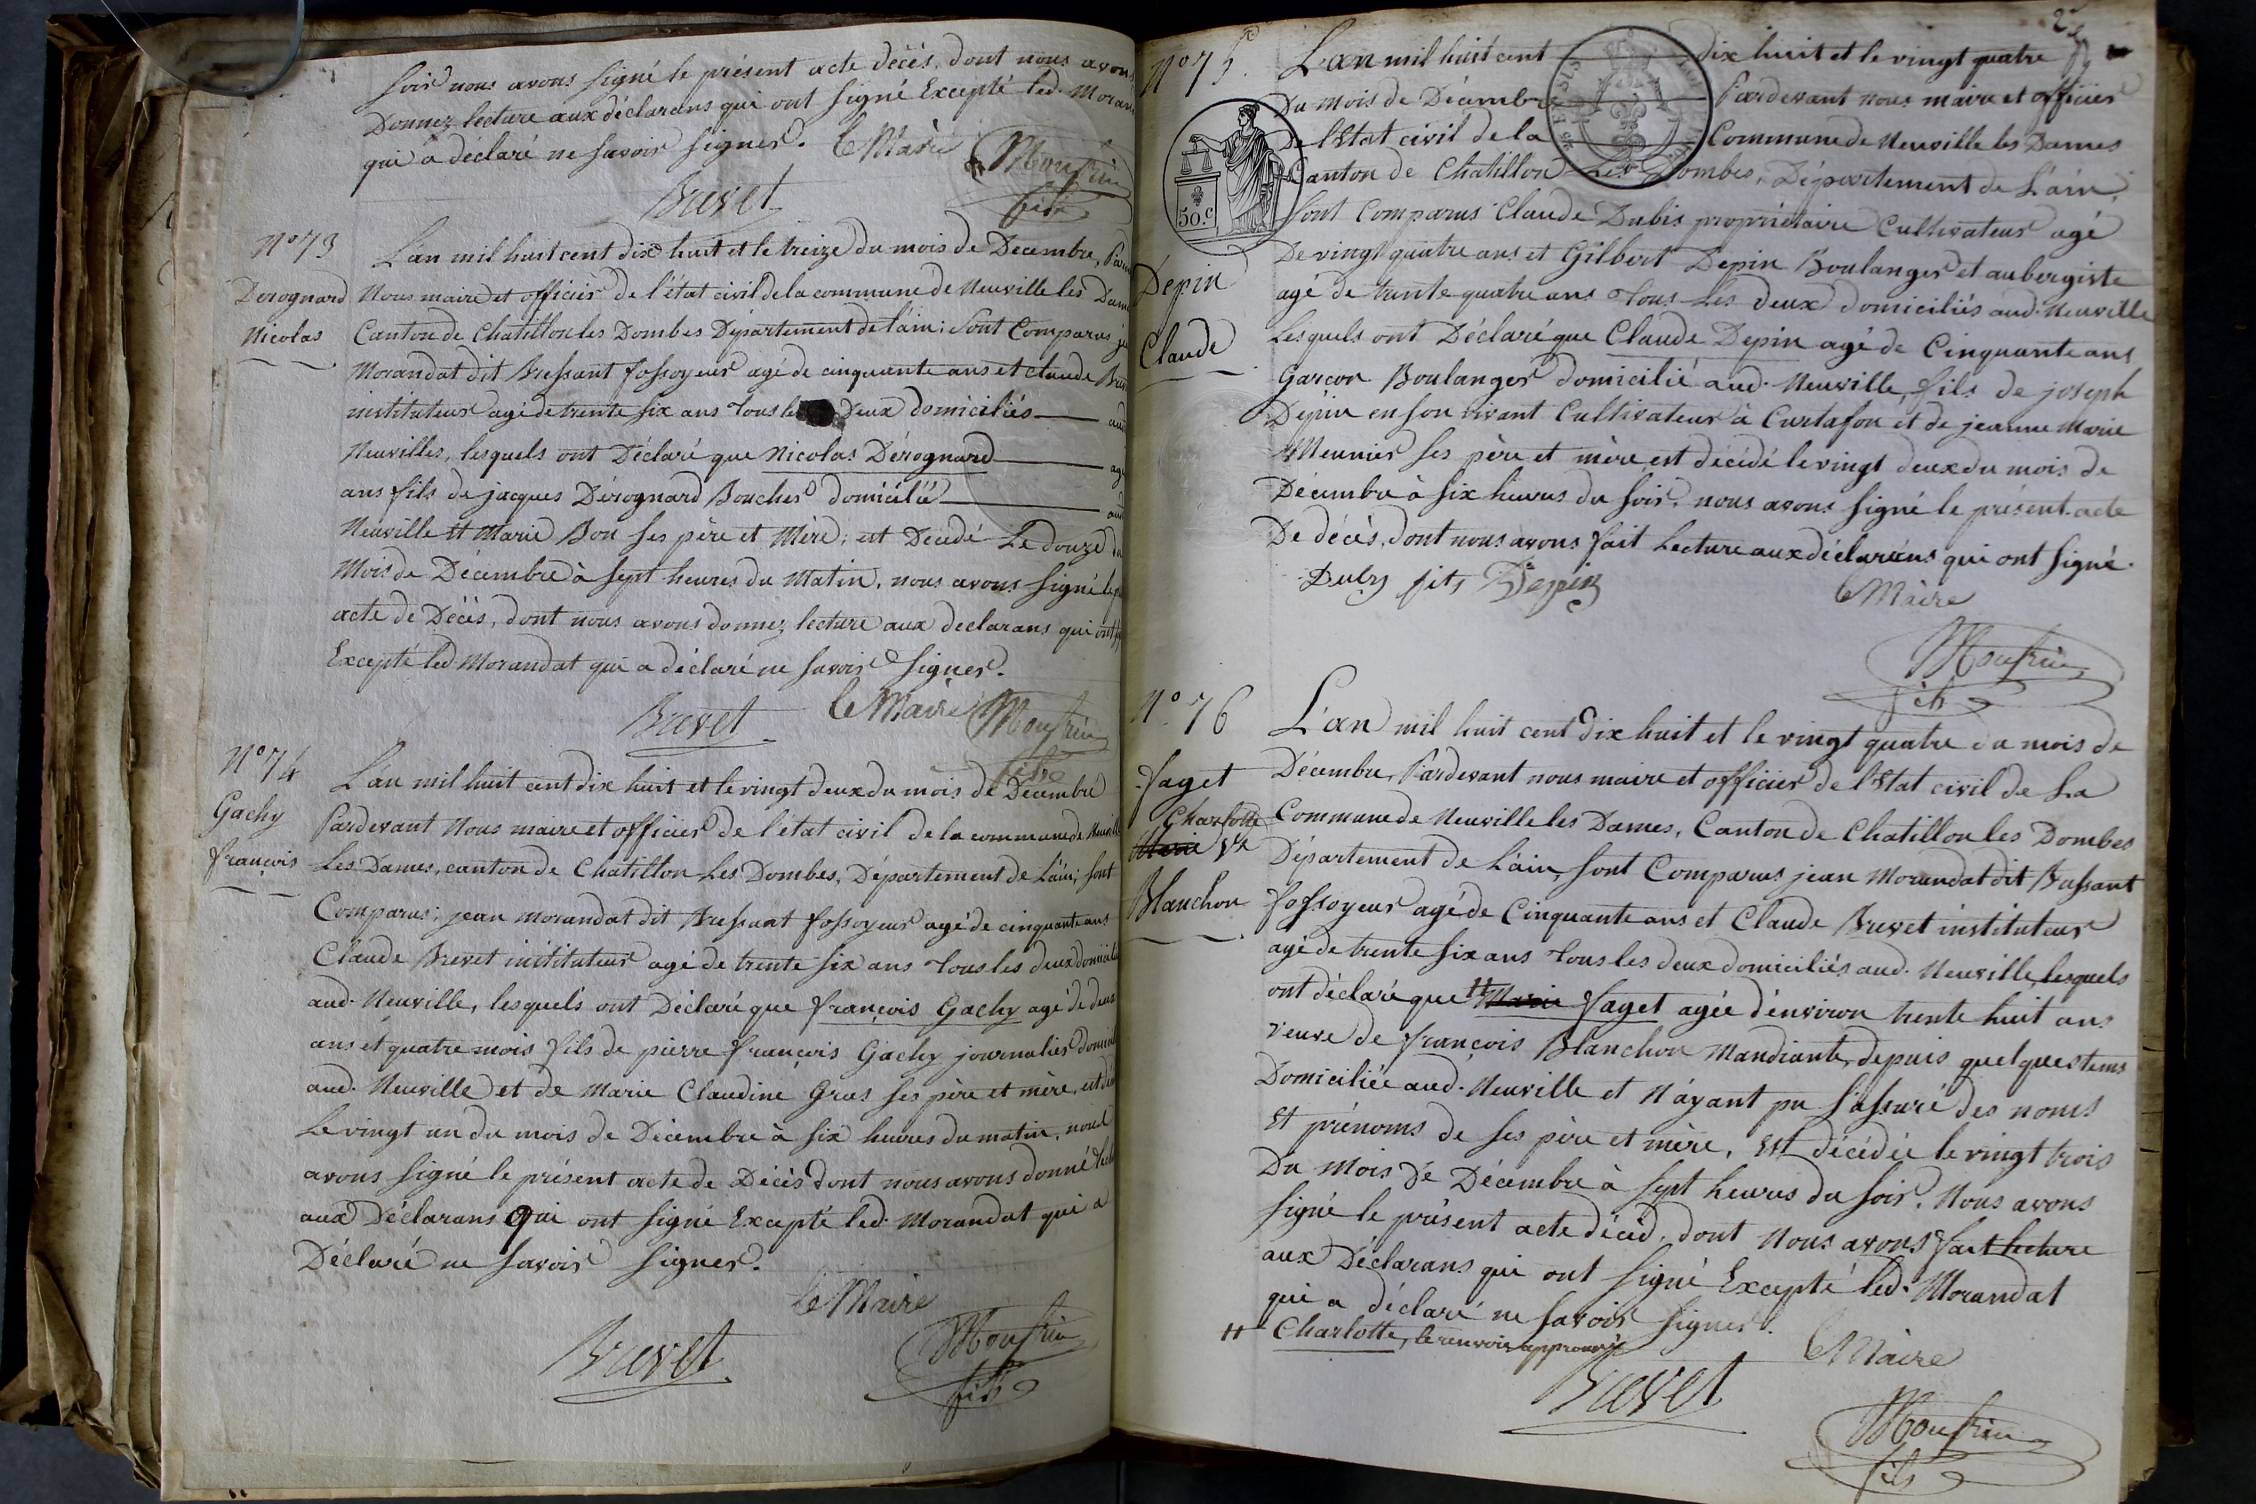 soir nous avons signé le présent acte décès, dont nous avons
Donnez lecture aux déclarans qui ont signé Excepté led. Moran
qui a déclaré ne savoir signer. le Maire
Brevet
fils
N° 73
Derognard
Nicolas
L'an mil huit cent dix huit et le treize du mois de Decembre, Par
Nous maire et officier de l'état civil de la commune de Neuville les Dam
Canton de Chatillon les Dombes Département de l'ain; Sont Comparus je
Morandat dit Bressant fossoyeur agé de cinquante ans et Claude Brev
instituteur agé de trente six ans tous les deux domiciliés aud
Neuvilles, lesquels ont Déclaré que Nicolas Dérognard agé
ans fils de jacques Dérognard Boucher domicilié aud
Neuville Et Marie Bon ses père et Mère; est Décedé Le douze du
Mois de Décembre à sept heures du Matin, nous avons signé le p
acte de Décès, dont nous avons donnez lecture aux declarans qui ont
Excepté led. Morandat qui a déclaré ne savoir signer.
Brevet
le Maire
fils
N° 74
Gachy
françois
L'an mil huit cent dix huit et le vingt deux du mois de Décembre
Pardevant Nous maire et officier de l'état civil de la commune de Neuville
Les Dames, canton de Chatillon Les Dombes, Département de L'ain; sont
Comparus; jean morandat dit Bressant fossoyeur agé de cinquante ans
Claude Brevet instituteur agé de trente six ans tous les deux domicilié
aud. Neuville, lesquels ont Déclaré que françois Gachy agé de deux
ans et quatre mois fils de pierre françois Gachy journalier domicil
aud. Neuville et de Marie Claudine Gras ses père et mère, est dé
Le vingt un du mois de Décembre à six heures du matin, nous
avons signé le présent acte de Décès dont nous avons donné lect
aux Déclarans Qui ont signé Excepté led. Morandat qui a
Déclaré ne savoir signer.
le Maire
Brevet
fils
N° 75
50.c
Depin
Claude
L'an mil huit cent dix huit et le vingt quatre
Du mois de Décembre Pardevant nous maire et officier
De l'Etat civil de la Commune de Neuville les Dames
Canton de Chatillon Les Dombes, Département de L'ain,
Sont Comparus Claude Dubis propriétaire Cultivateur agé
De vingt quatre ans et Gilbert Depin Boulanger et aubergiste
agé de trente quatre ans Tous Les deux domiciliés aud. Neuville
Lesquels ont Déclaré que Claude Depin agé de Cinquante ans
Garçon Boulanger domicilié aud. Neuville, fils de joseph
Dépin en son vivant Cultivateur à Curtafon et de jeanne Marie
Meunier ses père et mère, est décédé le vingt deux du mois de
Décembre à six heures du soir, nous avons signé le présent acte
De décès, dont nous avons fait Lecture aux déclarans qui ont signé.
fils Deppin
le Maire
fils
N° 76
faget
Charlotte
Marie Ve
Blanchon
L'an mil huit cent dix huit et le vingt quatre du mois de
Décembre, Pardevant nous maire et officier de l'Etat civil de La
Commune de Neuville les Dames, Canton de Chatillon les Dombes
Département de L'ain, sont Comparus jean Morandat dit Bressant
fossoyeur agé de Cinquante ans et Claude Brevet instituteur
agé de trente six ans tous les deux domiciliés aud. Neuville, lesquels
ont déclaré que Marie faget agée d'environ trente huit ans
veuve de françois Blanchon Mandiante, depuis quelques tems
Domiciliée aud. Neuville et N'ayant pu s'assuré des noms
Et prénoms de ses père et mère, Est décédée le vingt trois
Du Mois De Décembre à sept heures du soir. Nous avons
signé le présent acte déced, dont Nous avons fait lecture
aux Déclarans qui ont signé Excepté led. Morandat
qui a déclaré ne savoir signer.
Charlotte, le renvoi approuvé
le Maire
Brevet
fils